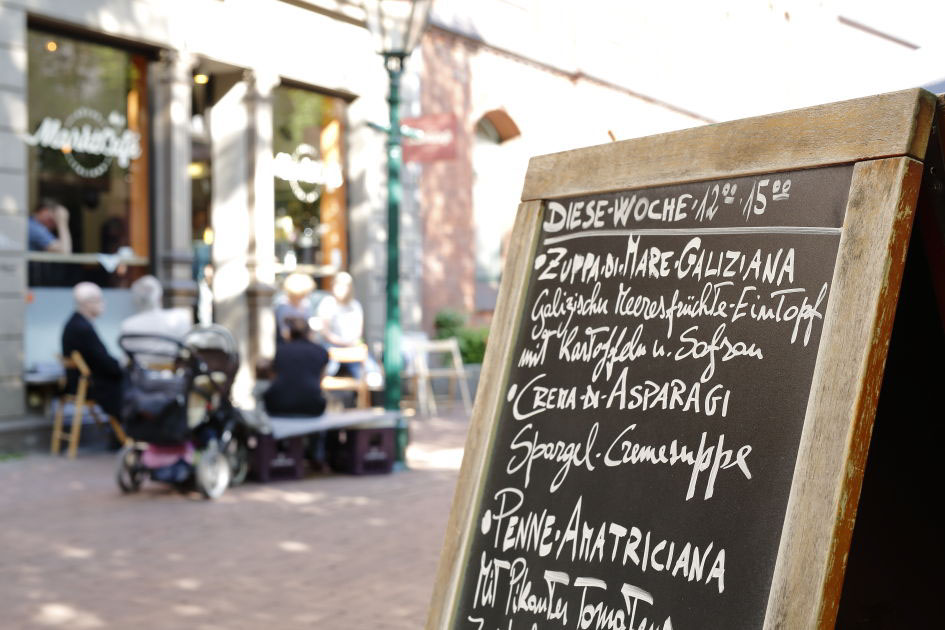 MarktCafé
DIESE·WOCHE·12⁰⁰ 15⁰⁰
•ZUPPA·DI·MARE·GALIZIANA
Galizische Meeresfrüchte-Eintopf
mit Kartoffeln u. Safran
•CREMA·DI·ASPARAGI
Spargel·Cremesuppe
•PENNE·AMATRICIANA
Mit Pikanter Tomaten